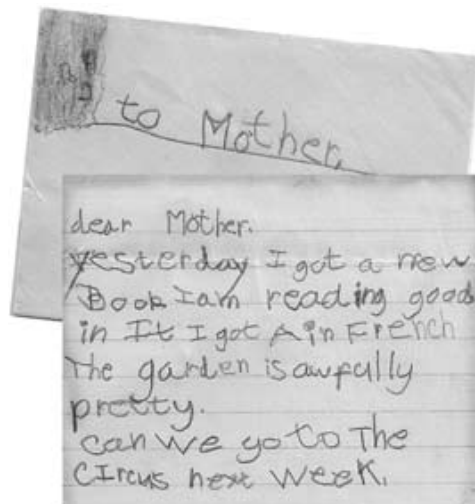 to Mother.
dear Mother.
yesterday I got a new
Book I am reading good
in It I got A in French
The garden is awfully
pretty.
can we go to The
Circus next week.